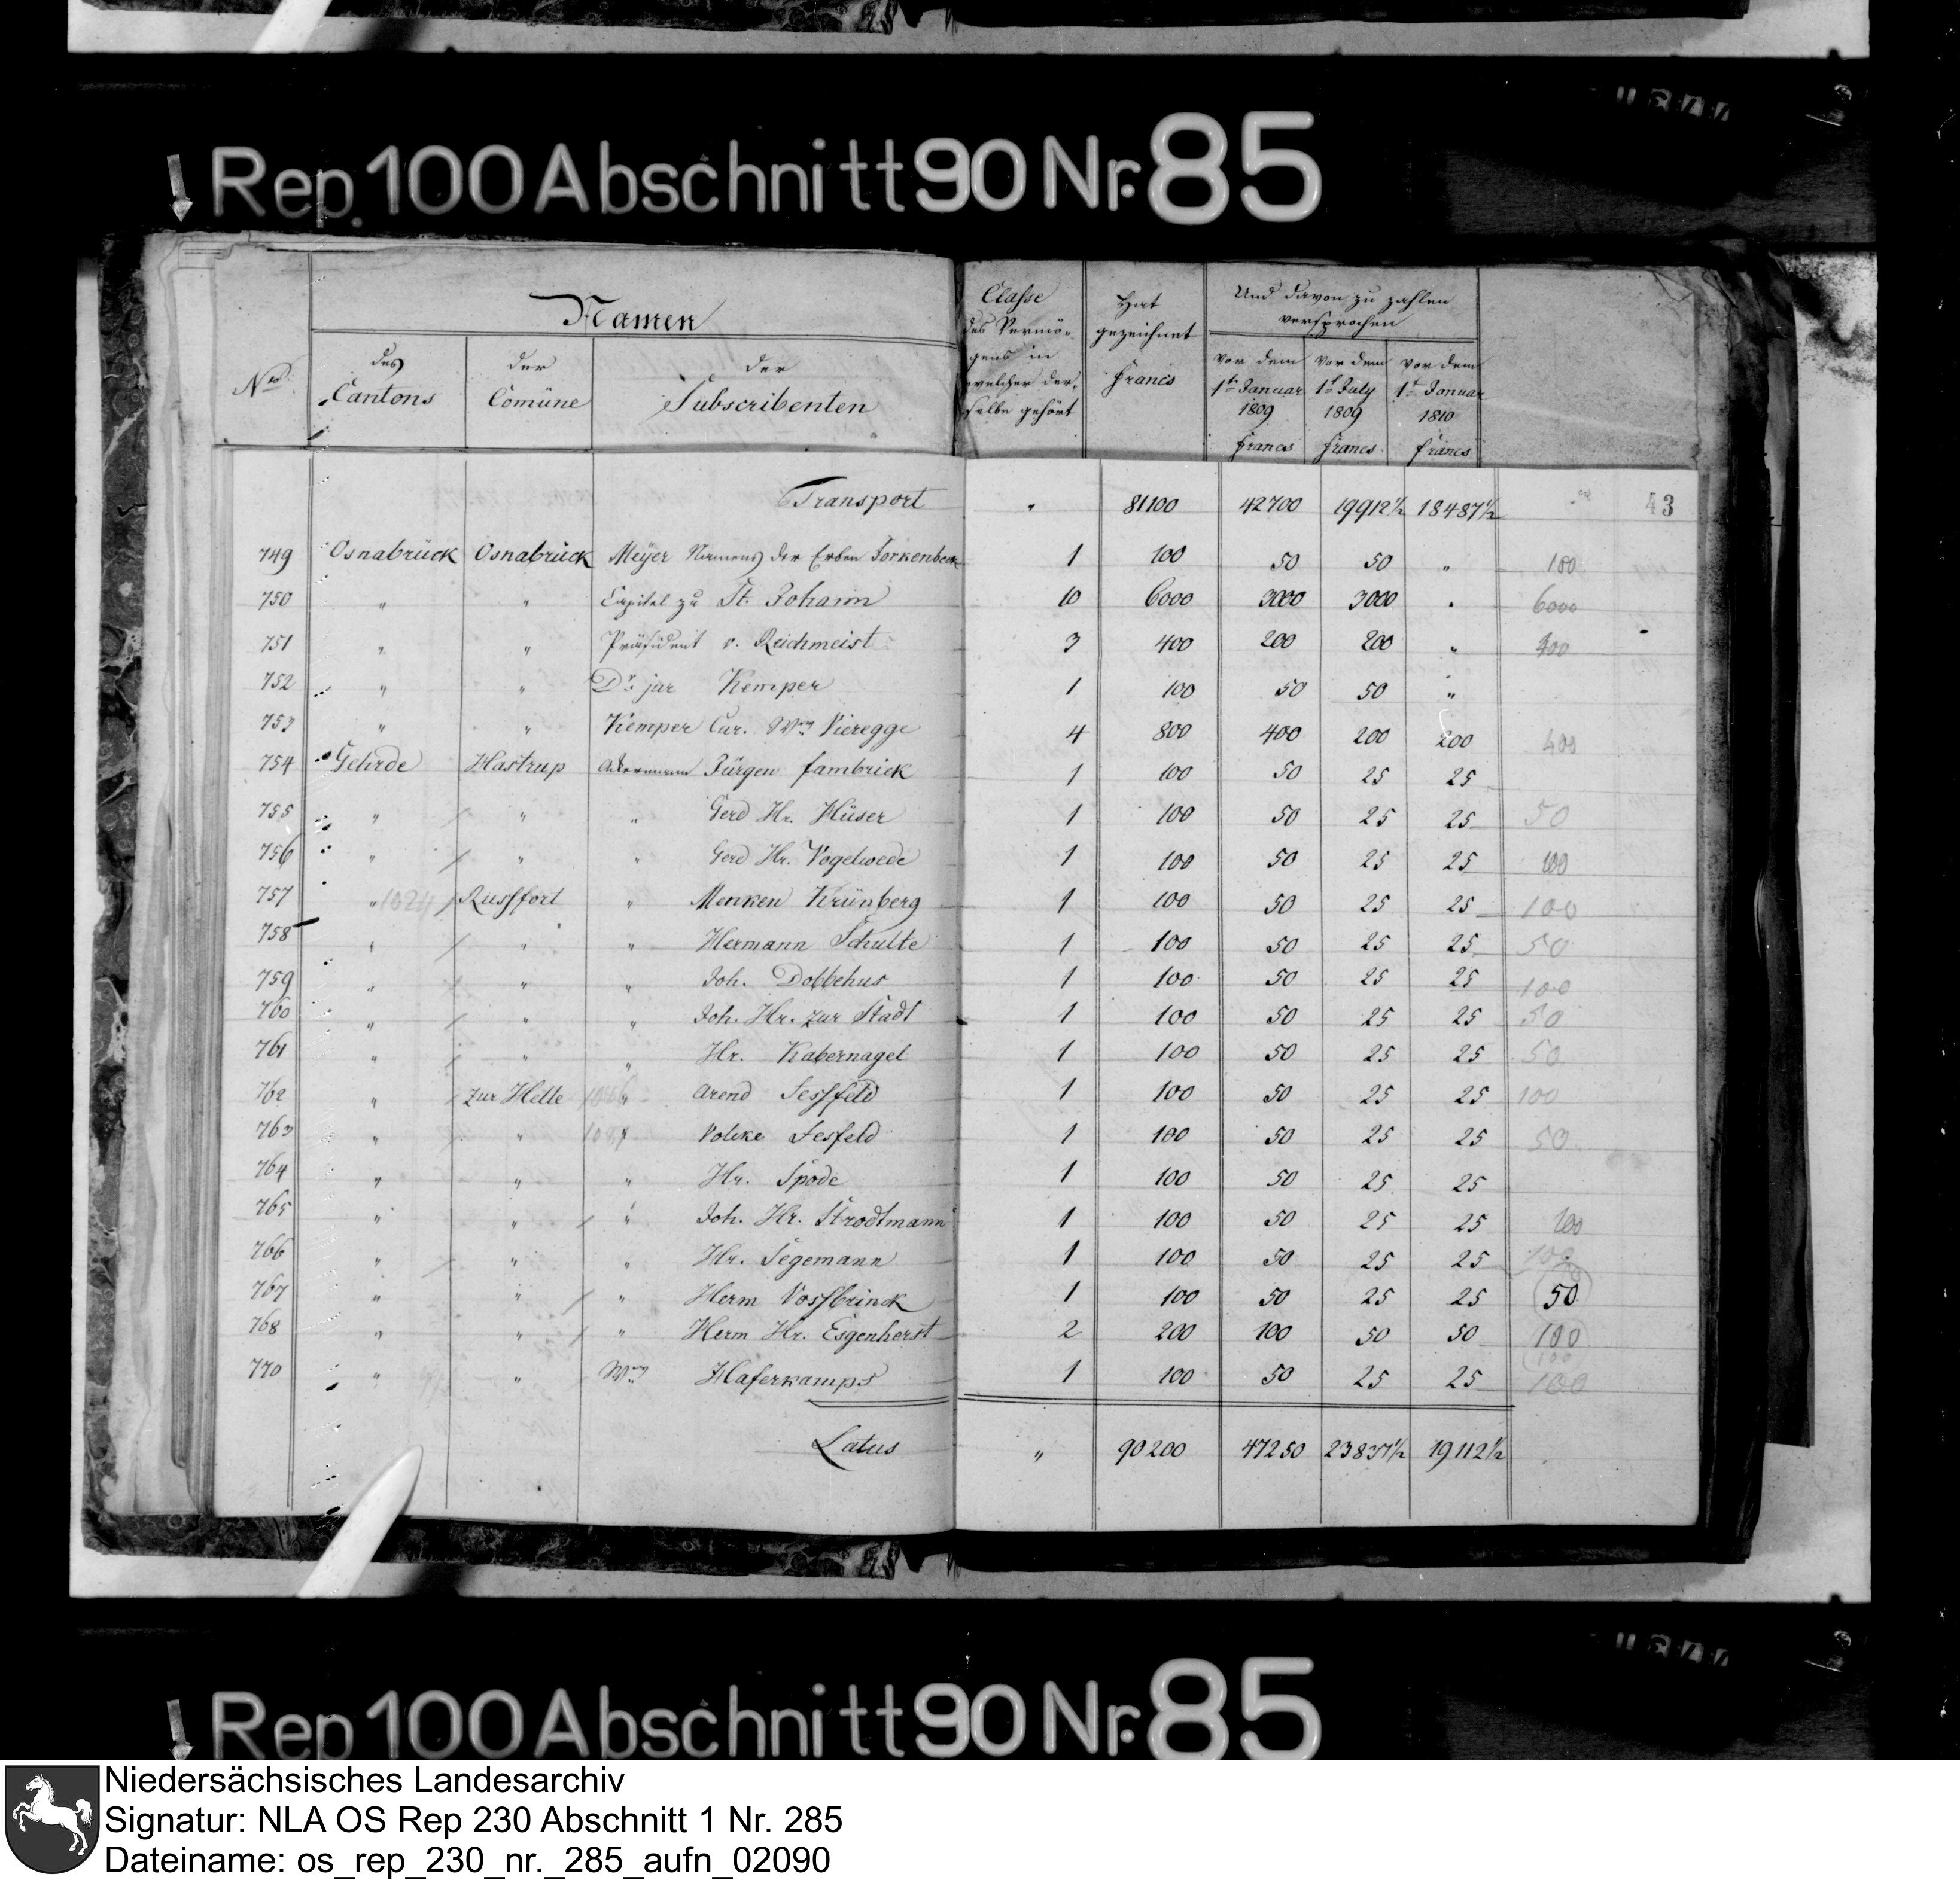 Rep. 100 Abschnitt 90 Nr. 85
Namen
Classe des Vermögens in welcher derselbe gehört
Hat gezeichnet Francs
Und davon zu zahlen versprochen
No. des Cantons der Comüne der Subscribenten
vor dem 1ten Januar 1809 Francs
vor dem 1t July 1809 Francs
vor dem 1t Januar 1810 Francs
Transport " 81100 42700 19912½ 18487½ 43
749 Osnabrück Osnabrück Meÿer Namens der Erben 1 100 50 50 " 100
750 " " Capitel zu St. Johann 10 6000 3000 3000 " 6000
751 " " Präsident v. Reichmeist 3 400 200 200 " 400
752 " " Dr. jur Kemper 1 100 50 50 "
753 " " Kemper Cur. Wwe Vieregge 4 800 400 200 200 400
754 Gehrde Hastrup Ackermann Jürgen fambrick 1 100 50 25 25
755 " " " Gerd Hr. Hüser 1 100 50 25 25 50
756 " " " Gerd Hr. Vogelwede 1 100 50 25 25 100
757 " Russfort " Menken Krünberg 1 100 50 25 25 100
758 " " " Hermann Schulte 1 100 50 25 25 50
759 " " " Joh. Dobbehus 1 100 50 25 25 100
760 " " " Joh. Hr. zur Stadt 1 100 50 25 25 50
761 " " " Hr. Kabernagel 1 100 50 25 25 50
762 " zur Helle " Arend Sessfeld 1 100 50 25 25 100
763 " " Volcke Sesfeld 1 100 50 25 25 50
764 " " " Hr. Spode 1 100 50 25 25
765 " " " Joh. Hr. Strodtmann 1 100 50 25 25 100
766 " " " Hr. Segemann 1 100 50 25 25 100
767 " " " Herm Vossbrinck 1 100 50 25 25 50
768 " " " Herm Hr. Esgenherst 2 200 100 50 50 100
770 " " Wwe Haferkamps 1 100 50 25 25 100
Latus " 90200 47250 23837½ 19112½
Rep 100 Abschnitt 90 Nr. 85
Niedersächsisches Landesarchiv
Signatur: NLA OS Rep 230 Abschnitt 1 Nr. 285
Dateiname: os_rep_230_nr._285_aufn_02090